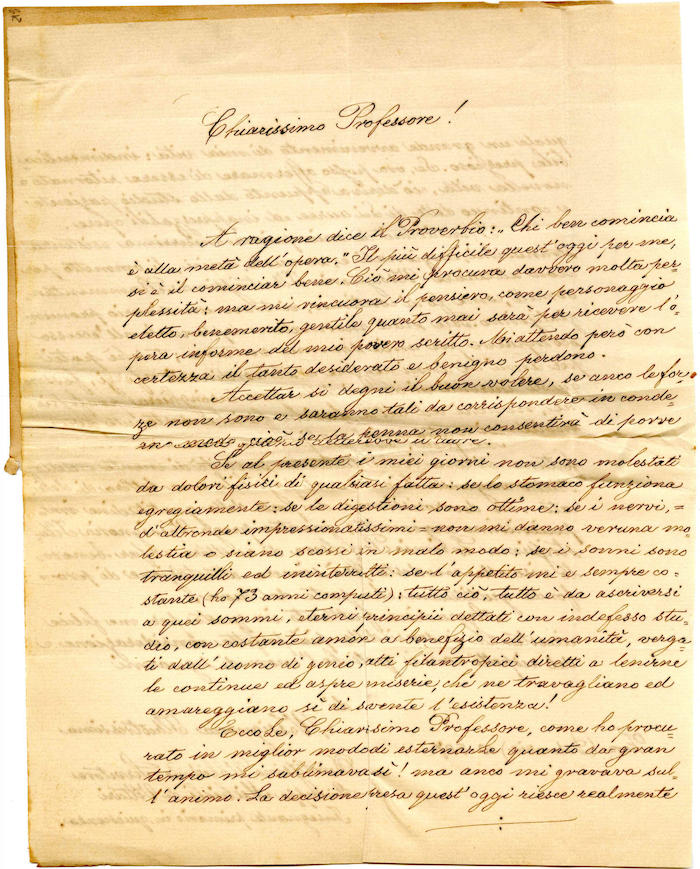 Chiarissimo Professore!
A ragione dice il Proverbio: „Chi ben comincia
è alla metà dell'opera." Il più difficile quest'oggi per me,
si è il cominciar bene. Ciò mi procura davvero molta per=
plessità: ma mi rincuora il pensiero, come personaggio
eletto, benemerito, gentile quanto mai sarà per ricevere l'o=
pra informe del mio povero scritto. Mi attendo però con
certezza il tanto desiderato e benigno perdono.
Accettar si degni il buon volere, se anco le for=
ze non sono e saranno tali da corrispondere in conde
se la penna non consentirà di porre
il cuore.
Se al presente i miei giorni non sono molestati
da dolori fisici di qualsiasi fatta: se lo stomaco funziona
egregiamente: se le digestioni sono ottime: se i nervi, =
d'altronde impressionatissimi = non mi danno veruna mo=
lestia o siano scossi in malo modo: se i sonni sono
tranquilli ed ininterrotti: se l'appetito mi è sempre co=
stante (ho 73 anni compiuti): tutto ciò, tutto è da ascriversi
a quei sommi, eterni principii dettati con indefesso stu=
dio, con costante amor a benefizio dell'umanità, verga=
ti dall'uomo di genio, atti filantropici diretti a lenirne
le continue ed aspre miserie, che ne travagliano ed
amareggiano sì di sovente l'esistenza!
EccoLe, Chiarissimo Professore, come ho procu=
rato in miglior modo di esternarLe quanto da gran
tempo mi sublimavasi! ma anco mi gravava sul=
l'animo. La decisione presa quest'oggi riesce realmente